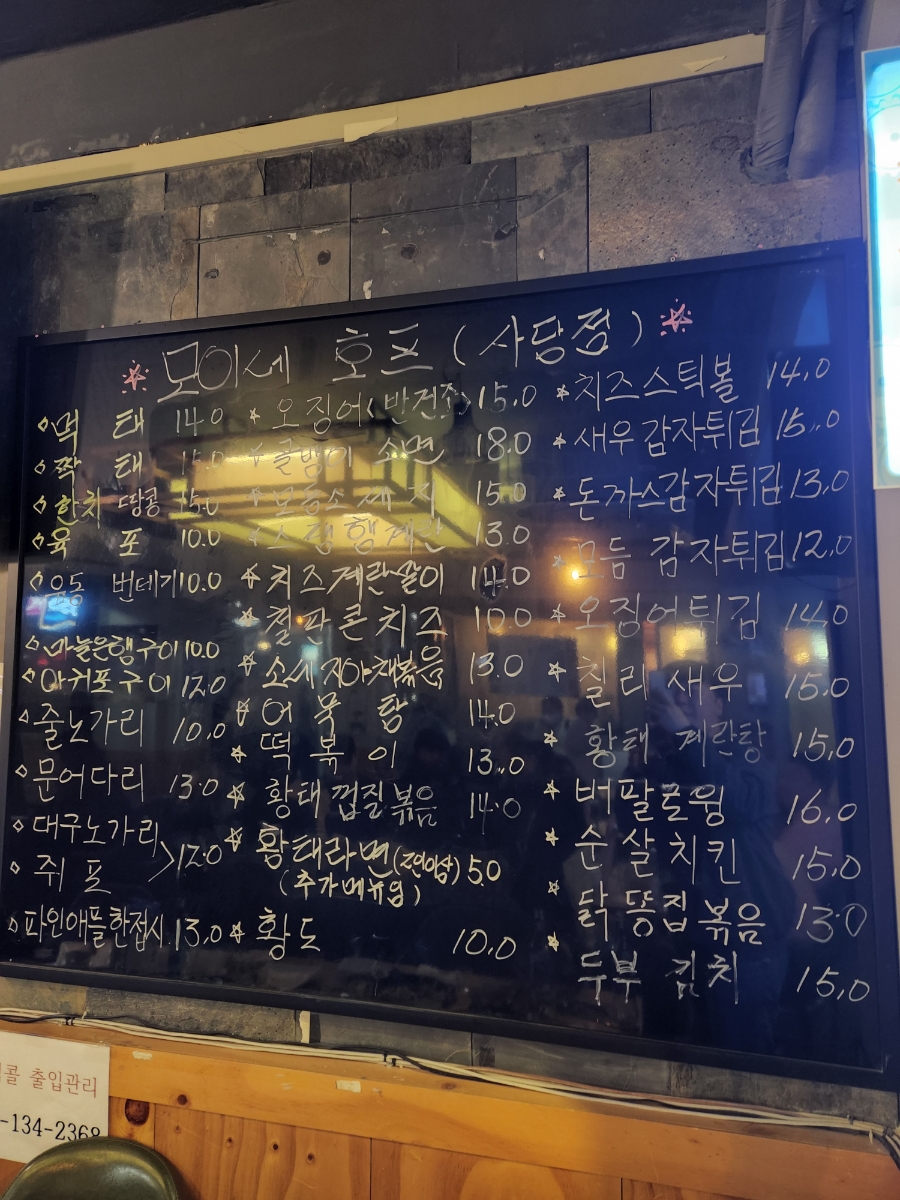 모이세 호프 (사당점)
먹 태 14.0
짝 태 15.0
한치 땅콩 15.0
육 포 10.0
유동 번데기 10.0
마늘은행구이 10.0
아귀포구이 12.0
줄노가리 10,0
문어다리 13.0
대구노가리
쥐 포 >12.0
파인애플한접시 13,0
오징어(반건조) 15,0
골뱅이 소면 18.0
모듬소세지 15.0
스팸행계란 13.0
치즈계란말이 14.0
철판콘치즈 10.0
소세지야채볶음 13.0
어묵탕 14.0
떡볶이 13,.0
황태껍질볶음 14.0
황태라면(2인이상) 5.0
(추가메뉴임)
황도 10,0
치즈스틱볼 14,0
새우감자튀김 15,.0
돈까스감자튀김 13,0
모듬 감자튀김 12,0
오징어튀김 14.0
칠리새우 15.0
황태 계란탕 15,0
버팔로윙 16.0
순살치킨 15,0
닭똥집볶음 13.0
두부김치 15,0
콜 출입관리
-134-2368